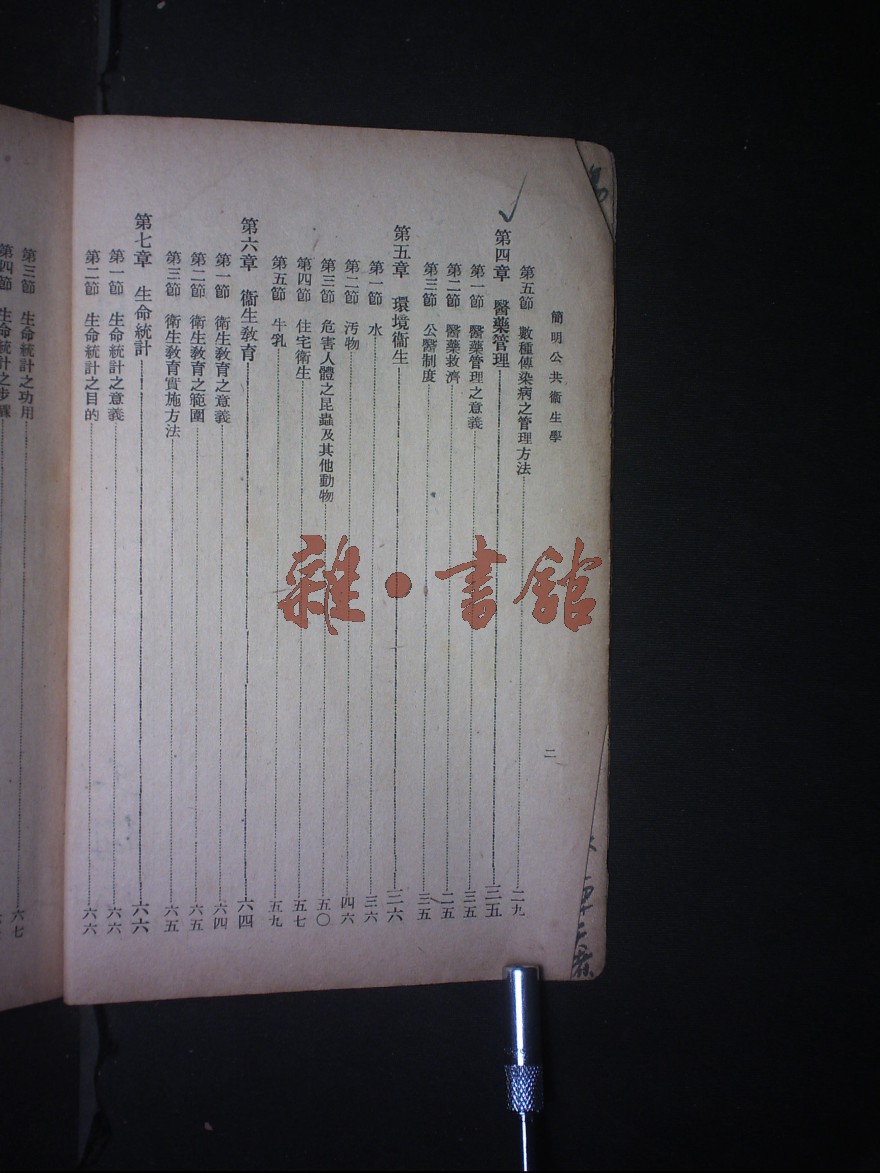 簡明公共衞生學
二
第五節 數種傳染病之管理方法 二九
第四章 醫藥管理 三五
第一節 醫藥管理之意義 三五
第二節 醫藥救濟 二五
第三節 公醫制度 三五
第五章 環境衞生 三六
第一節 水 三六
第二節 汚物 四六
第三節 危害人體之昆蟲及其他動物 五〇
第四節 住宅衞生 五七
第五節 牛乳 五九
第六章 衞生敎育 六四
第一節 衞生敎育之意義 六四
第二節 衞生敎育之範圍 六五
第三節 衞生敎育實施方法 六五
第七章 生命統計 六六
第一節 生命統計之意義 六六
第二節 生命統計之目的 六六
第三節 生命統計之功用 六七
第四節 生命統計之步驟
雜·書館